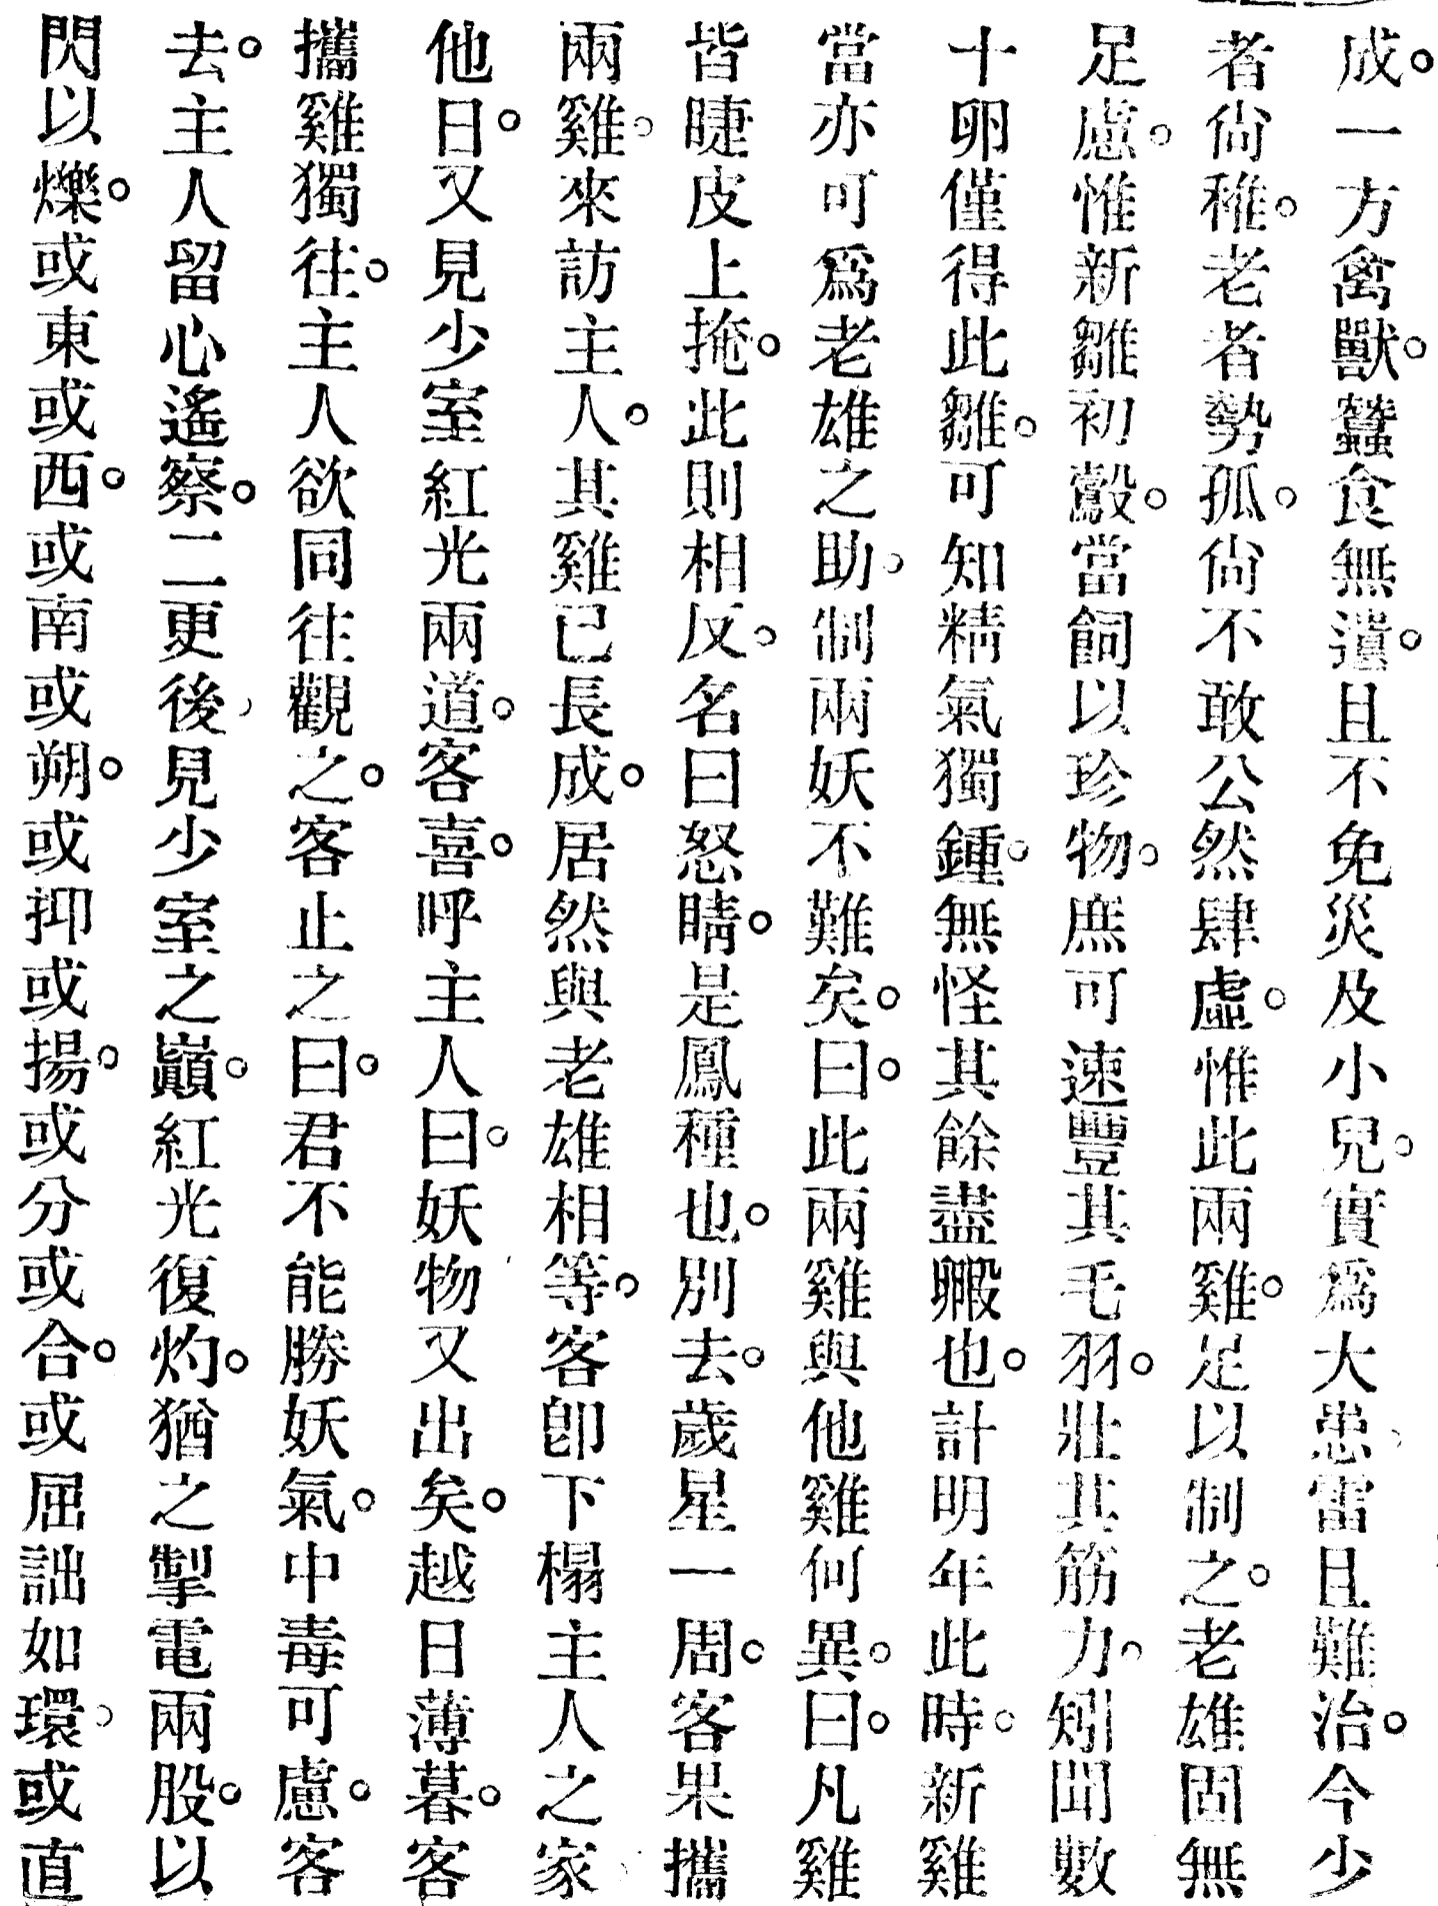 成。一方禽獸。蠶食無遺。且不免災及小兒。實爲大患。雷且難治。今少
者尙稚。老者勢孤。尙不敢公然肆虛。惟此兩雞。足以制之。老雄固無
足慮。惟新雛初鷇。當飼以珍物。庶可速豐其毛羽。壯其筋力。矧聞數
十卵僅得此雛。可知精氣獨鍾。無怪其餘盡毈也。計明年此時。新雞
當亦可爲老雄之助。制兩妖不難矣。曰。此兩雞與他雞何異。曰。凡雞
皆睫皮上掩。此則相反。名曰怒睛。是鳳種也。別去。歲星一周。客果攜
兩雞。來訪主人。其雞已長成。居然與老雄相等。客卽下榻主人之家
他日。又見少室紅光兩道。客喜。呼主人曰。妖物又出矣。越日薄暮。客
攜雞獨往。主人欲同往觀之。客止之曰。君不能勝妖氣。中毒可慮。客
去。主人留心遙察。二更後見少室之巔。紅光復灼。猶之掣電兩股。以
閃以爍。或東或西。或南或朔。或抑或揚。或分或合。或屈詘如環。或直